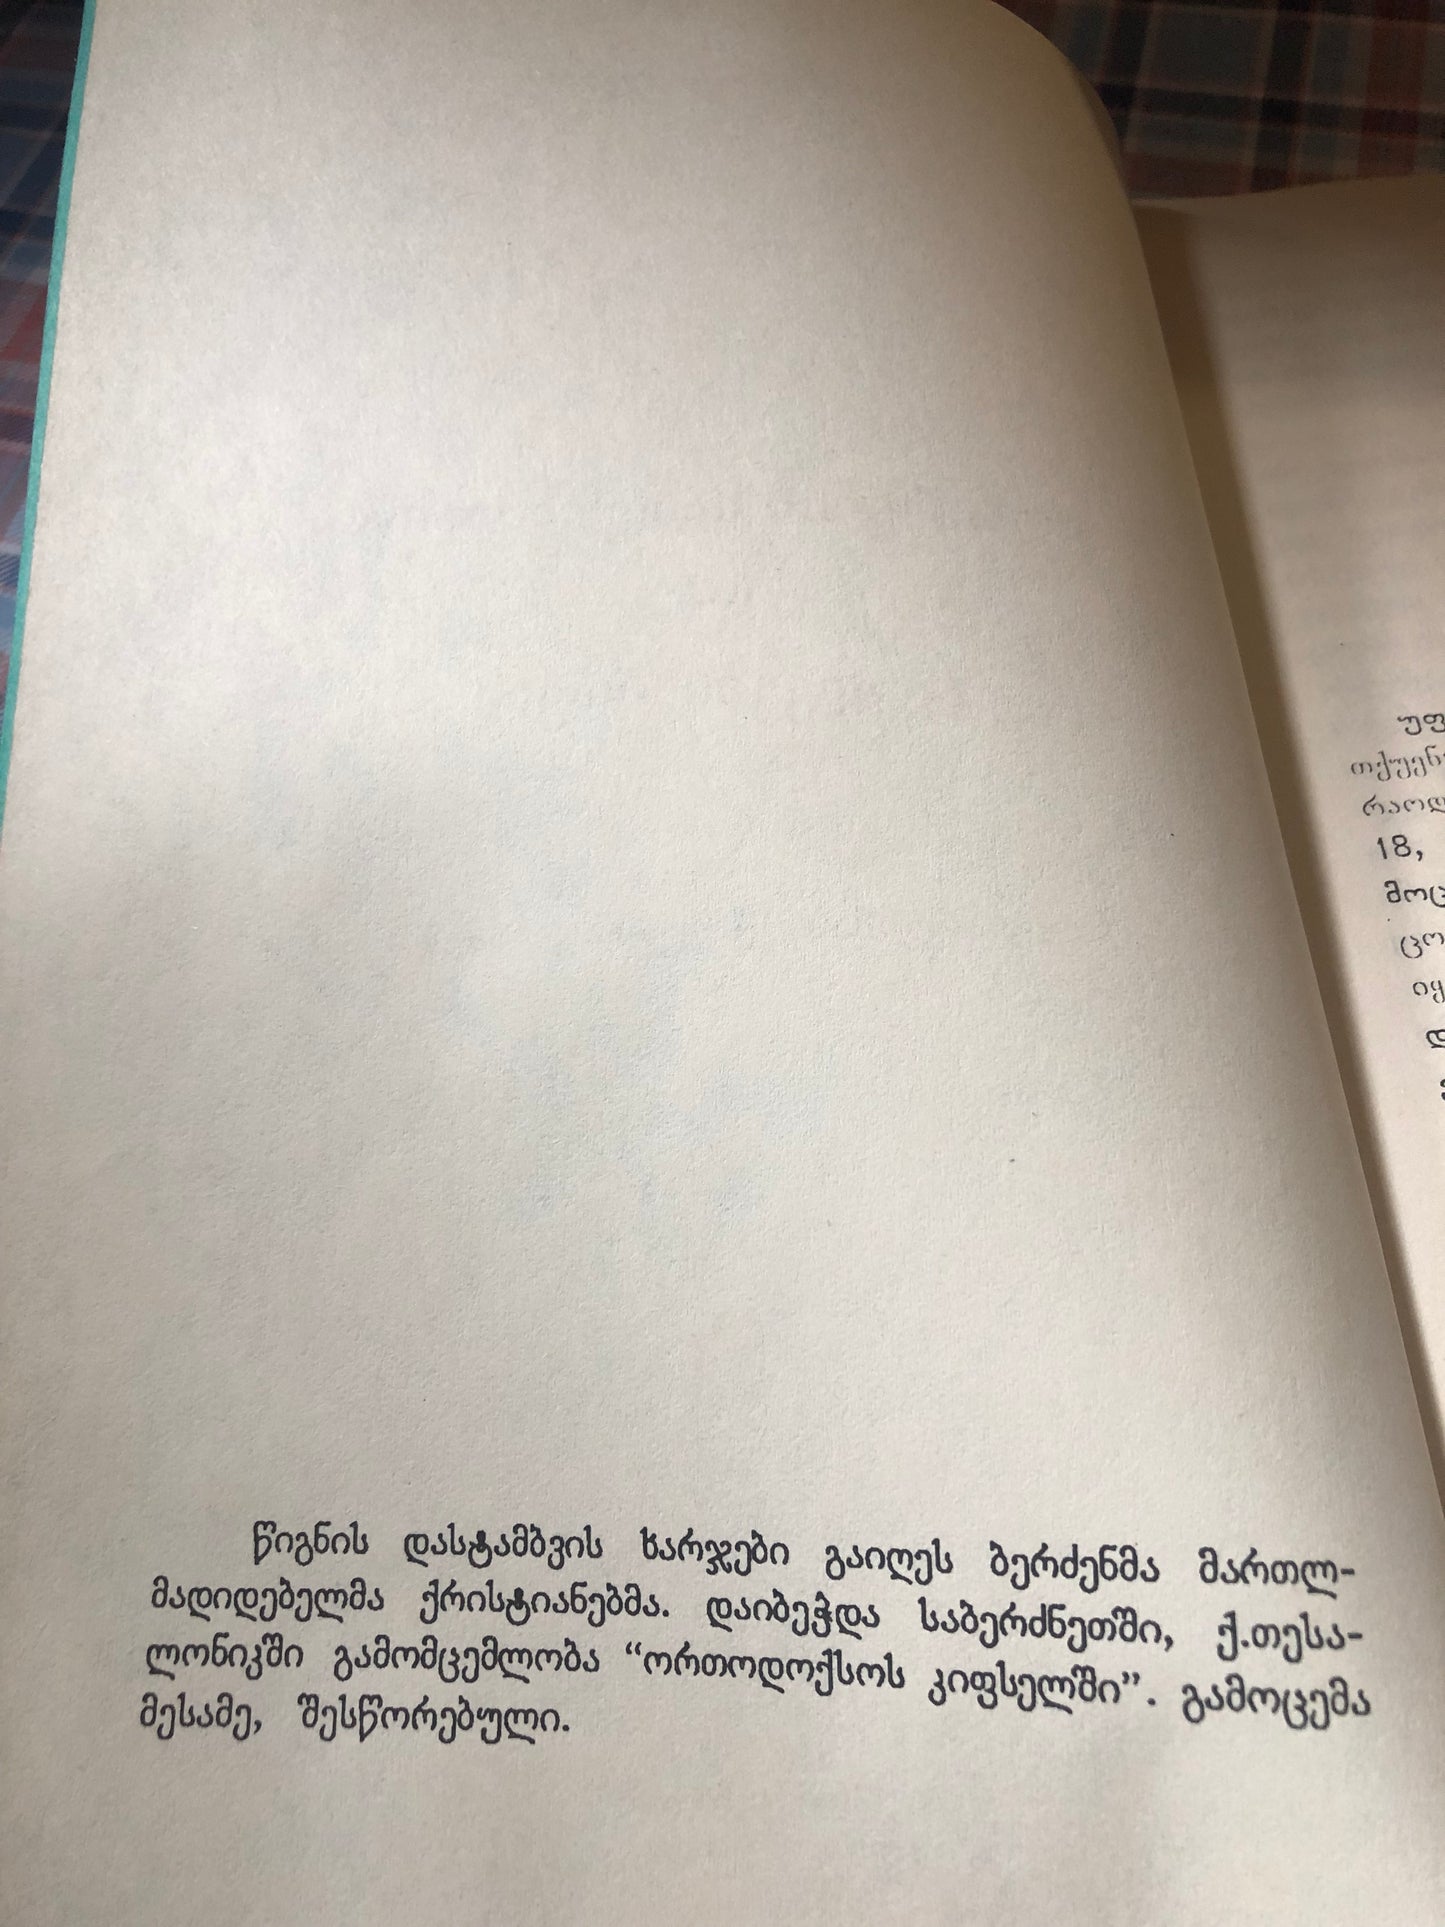 წიგნის დასტამბვის ხარჯები გაიღეს ბერძენმა მართლ-
მადიდებელმა ქრისტიანებმა. დაიბეჭდა საბერძნეთში, ქ.თესა-
ლონიკში გამომცემლობა “ორთოდოქსოს კიფსელში”. გამოცემა
მესამე, შესწორებული.
18,